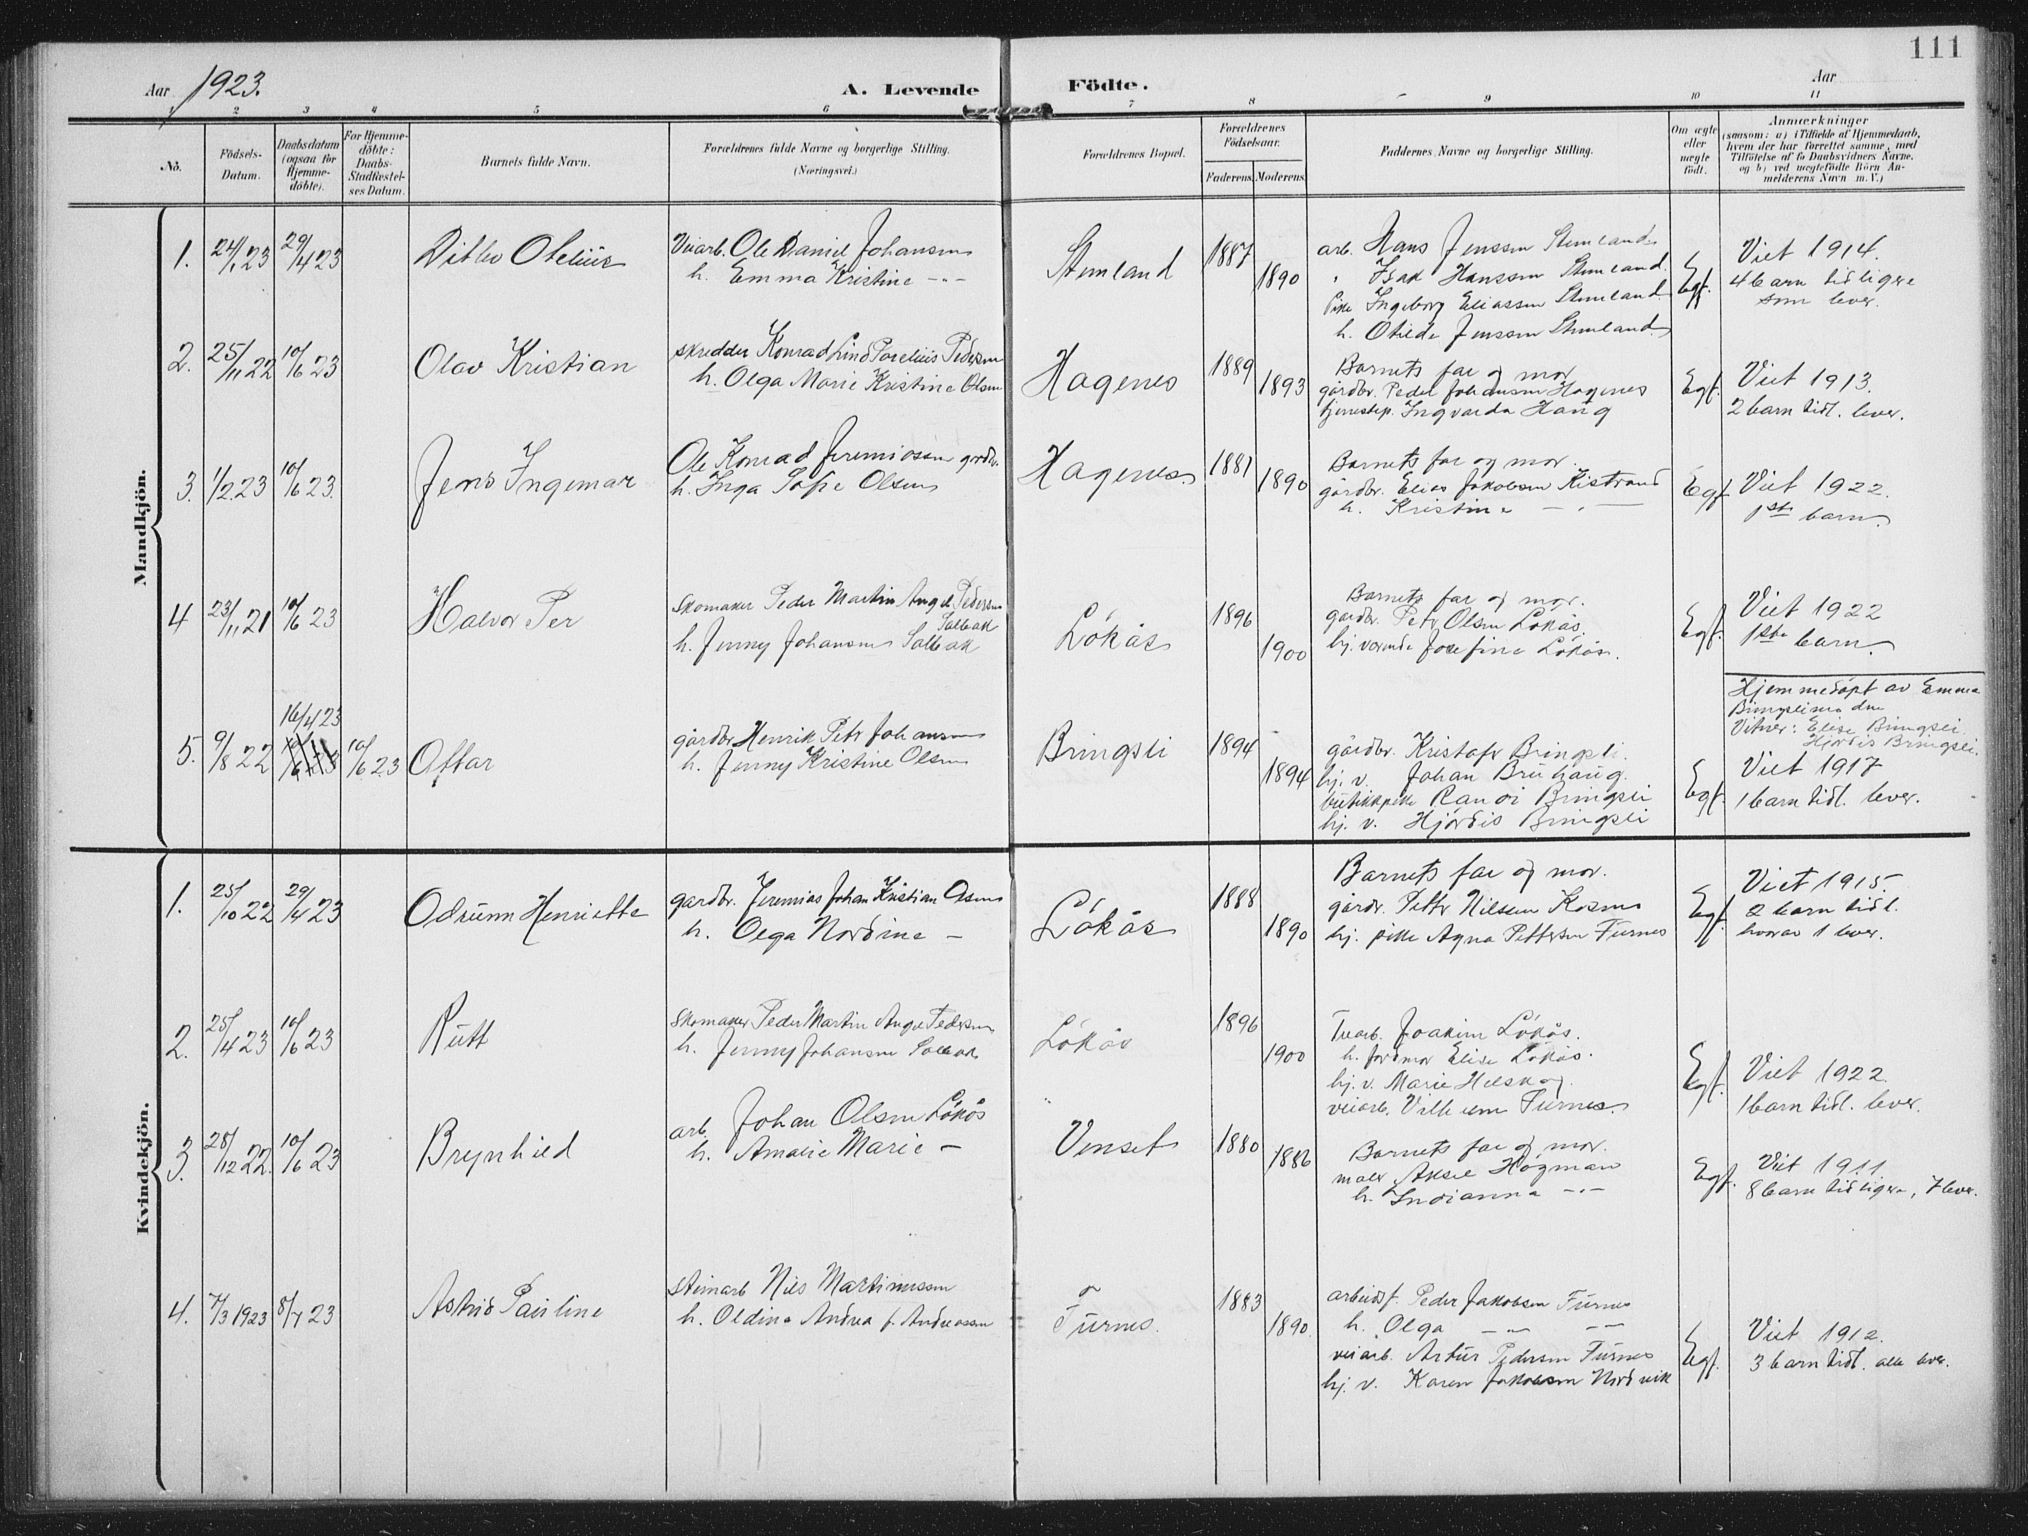 111
Aar 1923. A. Levende Födte. Aar
1 2 3 4 5 6 7 8 9 10 11
No.
Födsels-
Datum.
Daabsdatum
(ogsaa for
Hjemme-
döbte).
For Hjemme-
döbte:
Daabs-
Stadfæstel-
ses Datum.
Barnets fulde Navn.
Forældrenes fulde Navne og borgerlige Stilling.
(Næringsvei.)
Forældrenes Bopæl.
Forældrenes
Födselsaar.
Faderens. Moderens.
Faddernes Navne og borgerlige Stilling.
Om ægte
eller
uægte
födt.
Anmærkninger
(saasom: a) i Tilfælde af Hjemmedaab,
hvem der har forrettet samme, med
Tilföielse af to Daabsvidners Navne,
og b) ved uægtefödte Börn An-
melderens Navn m. V.)
Mandkjön.
1. 24/1 23 29/4 23 Ditlev Otelius
Veiarb. Ole Daniel Johansen
h. Emma Kristine -"-
Stemland 1887 1890
arb. Hans Jenssen Stemland
" Isak Hanssen Stemland
Pike Ingeborg Eliassen Stemland
h. Otelide Jenssen Stemland
Egf.
Viet 1914.
4 barn tidligere
som lever.
2. 25/11 22 10/6 23 Olav Kristian
skredder Konrad Lind Parelius Pedersen
h. Olga Marie Kristine Olsen
Hagenes 1889 1893
Barnets far og mor
gårdbr. Peder Johansen Hagenes
tjenestep. Ingvarda Haug
Egf.
Viet 1913.
2 barn tidl. lever.
3. 1/2 23 10/6 23. Jens Ingemar
Ole Konrad Jeremiassen gårdbr.
h. Inga Sofie Olsen
Hagenes 1881 1890
Barnets far og mor.
gårdbr. Elias Jakobsen Kistrand
h. Kristine - " -
Egf.
Viet 1922.
1ste barn.
4 23/11 21 10/6 23 Halvor Per
Skomaker Peder Martin Angel Pedersen
Salbak
h. Jenny Johansen Salbak
Lökås 1896 1900
Barnets far og mor.
gårdbr. Petr Olsen Lökås.
hj. værende Josefine Lökås.
Egf.
Viet 1922
1ste barn.
5. 9/8 22 16/4 23 10/6 23 Ottar
gårdbr Henrik Petr Johansen
h. Jenny Kristine Olsen
Bringsli 1894 1894
gårdbr. Kristofr Bringsli.
hj. v. Johan Bruhaug.
butikkpike Randi Bringsli
hj. v. Hjördis Bringsli
Egf.
Hjemmedöpt av Emma
Vitner: Elise Bringsli
Hjördis Bringsli.
Viet 1917
1 barn tidl. lever.
Kvindekjön.
1. 25/10 22 29/4 23 Odrunn Henriette
gardbr. Jeremias Johan Kristian Olsen
h. Olga Nordine -
Lökås 1888 1890
Barnets far og mor.
gårdr. Pettr Nilsen Kosmo
hj. pike Agna Pettersen Furnes
Egf.
Viet 1915.
2 barn tidl.
hvorav 1 lever.
2. 25/4 23 10/6 23 Rutt
Skomaker Peder Martin Angel Pedersen
h. Jenny Johansen Salbak
Lökås 1896 1900
Joakim Lökås.
h. jordmor Elise Lökås.
hj. v. Marie Helskog.
veiarb. Vilhelm Furnes.
Egf.
Viet 1922.
1 barn tidl. lever.
3. 28/12 22. 10/6 23 Brynhild
arb. Johan Olsen Lökås
h. Amalie Marie -
Venset 1880 1886
Barnets far og mor.
maler Aksel Högman
h. Indianna -"-
Egf.
Viet 1911
8 barn tidligere, 7 lever.
4. 7/3 1923 8/7 23 Astrid Pauline
steinarb Nils Martinussen
h. Oldine Andrea f. Andreassen
Furnes. 1883 1890
arbeidsf. Peder Jakobsen Furnes
h. Olga -"- -"-
veiarb. Artur Pedersen Furnes
hj. v. Karen Jakobsen Nordvik
Egf.
Viet 1912.
3 barn tidl. alle lever.